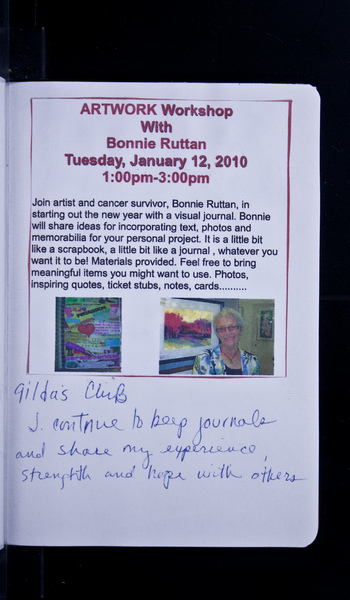 ARTWORK Workshop
With
Bonnie Ruttan
Tuesday, January 12, 2010
1:00pm-3:00pm
Join artist and cancer survivor, Bonnie Ruttan, in
starting out the new year with a visual journal. Bonnie
will share ideas for incorporating text, photos and
memorabilia for your personal project. It is a little bit
like a scrapbook, a little bit like a journal , whatever you
want it to be! Materials provided. Feel free to bring
meaningful items you might want to use. Photos,
inspiring quotes, ticket stubs, notes, cards..........
Gilda's Club
I continue to keep journals
and share my experience,
strength and hope with others